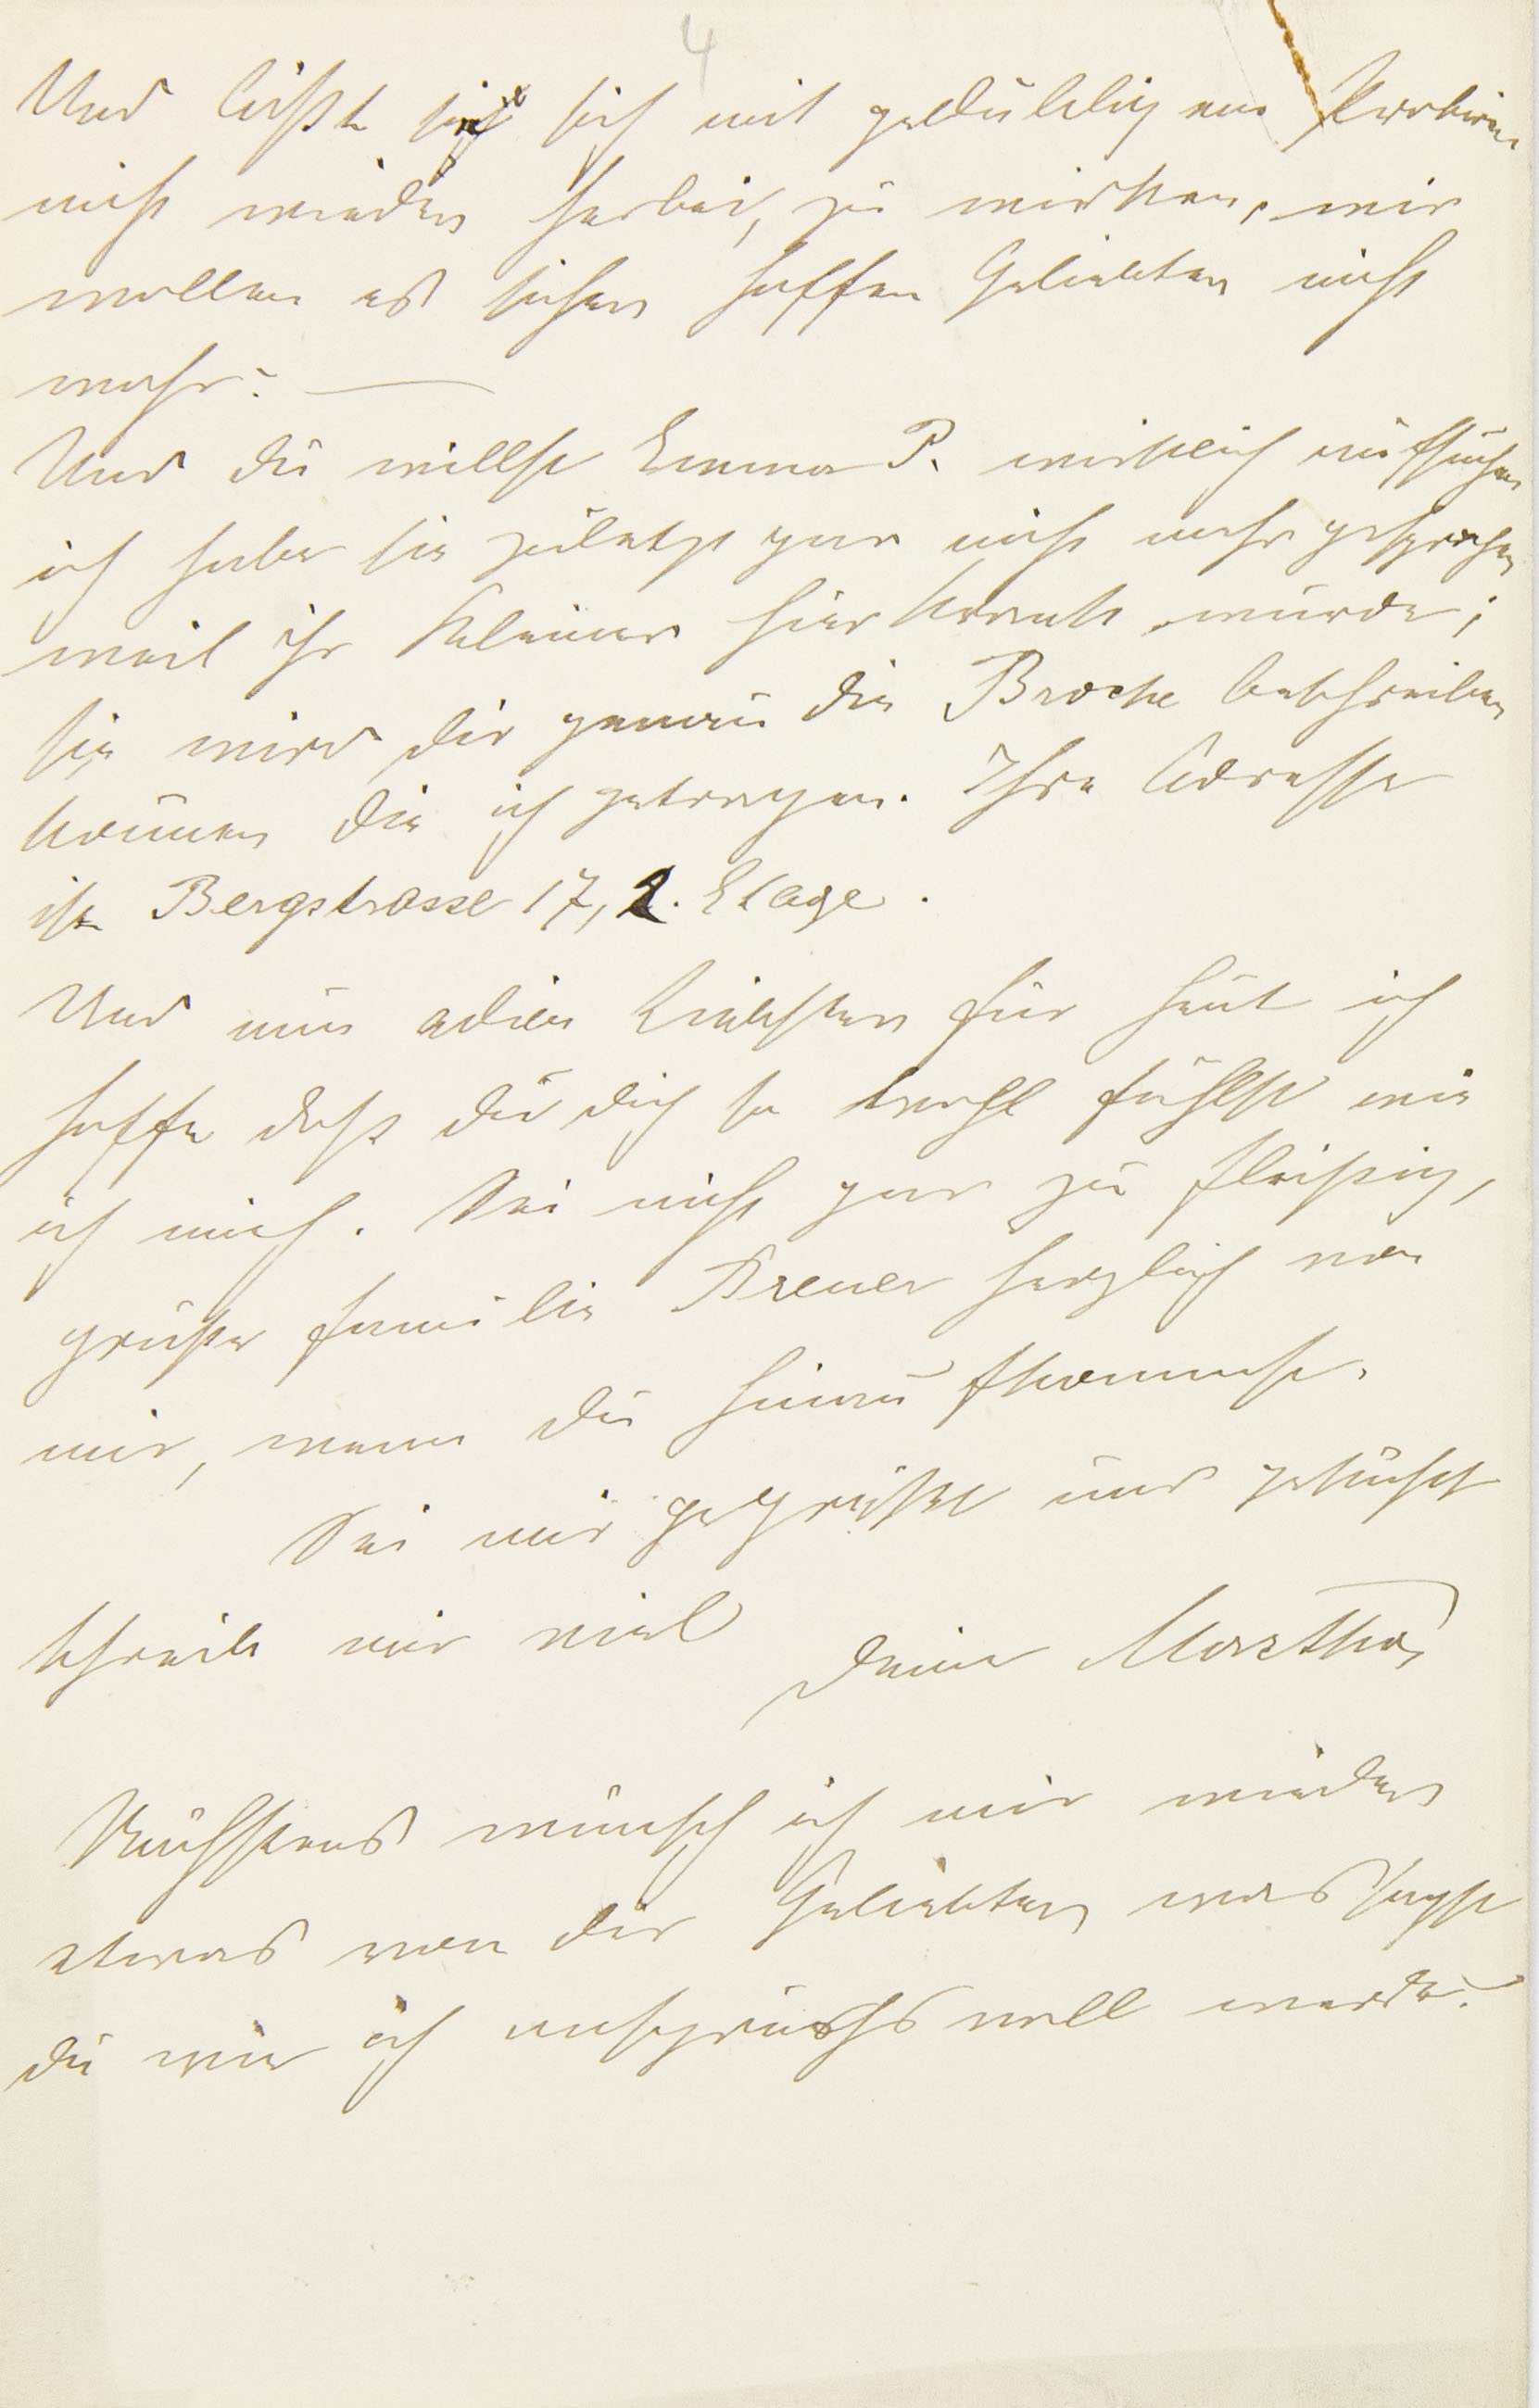 4
Und läßt sie sich mit geduldig am Probiren
nicht wieder herbei, zu wirken, wir
wollen es sicher hoffen Geliebter nicht
wahr? —
Und du willst Emma P. wirklich aufsuchen
ich habe sie zuletzt gar nicht mehr gesprochen
weil ihr Kleiner hier krank wurde;
sie wird dir genau die Broche beschreiben
können die ich getragen. Ihre Adresse
ist Bergstrasse 17, 2. Etage.
Und nun adieu Liebster für heut ich
hoffe daß du dich so wohl fühlst wie
ich mich. Sei nicht gar zu fleißig,
grüße Familie Breuer herzlich von
mir, wenn du hinaufkommst.
Sei mir gegrüßt und geküßt
schreib mir viel deine Martha
Nächstens wünsch ich mir wieder
etwas von dir Geliebter was sagst
du wie ich anspruchsvoll werde?